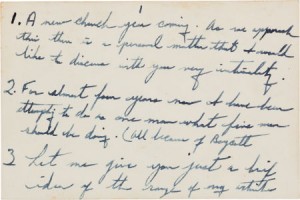 1
1. A new church year coming. As we approach
this there is a personal matter that I would
like to discuss with you very intimately.
2. For almost four years now I have been
attempting to do as one man what five men
should be doing. (All because of
3 Let me give you just a brief
idea of the range of my